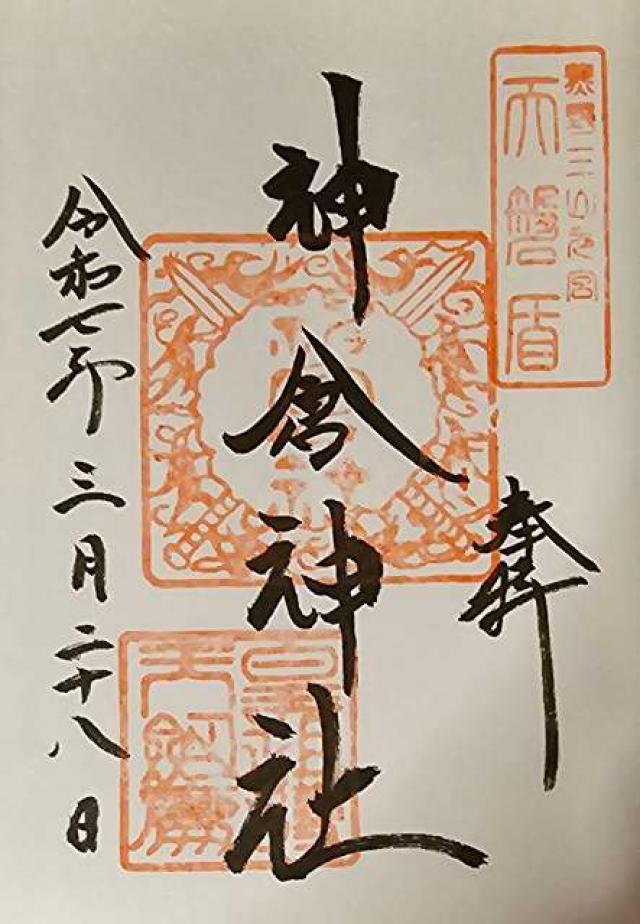 熊野三山元宮
天磐盾
奉拝
神倉神社
令和七年三月二十八日